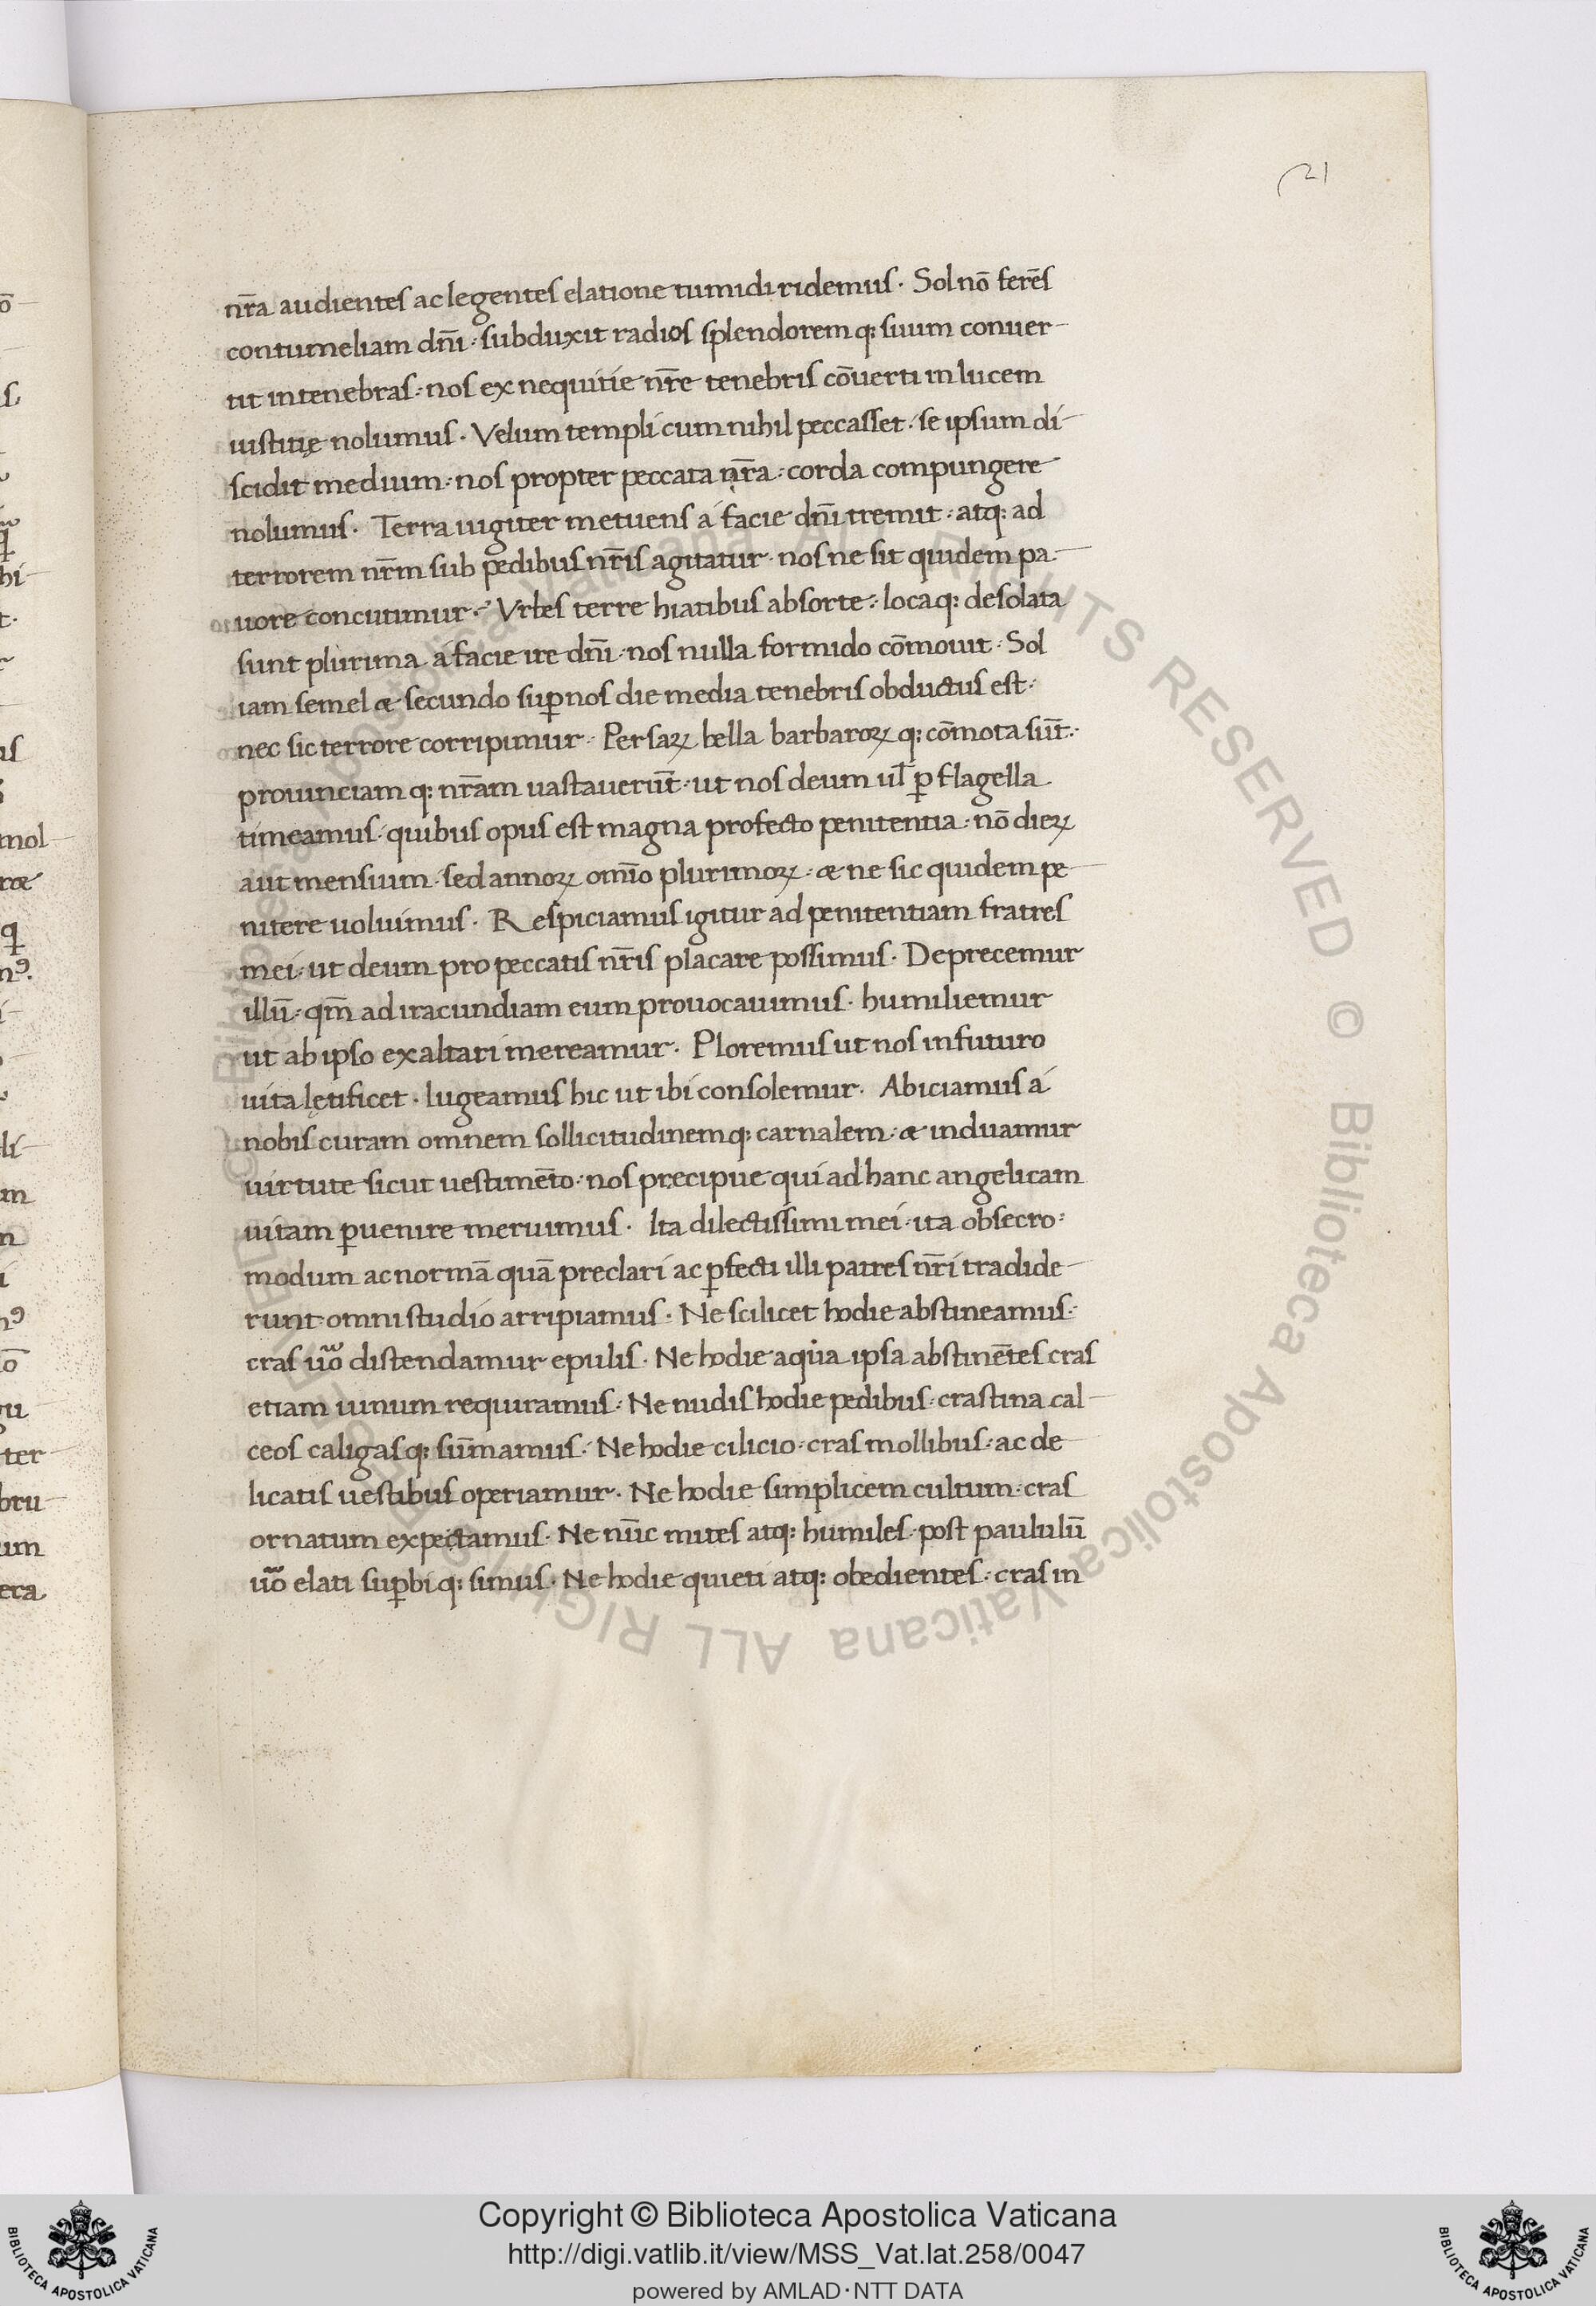 21
nr̄a audientes ac legentes elatione tumidi ridemus. Sol nō ferēs
contumeliam dn̄i: subduxit radios splendoremq: suum conuer-
tit in tenebras: nos ex nequitie nr̄e tenebris cōuerti in lucem
iustitię nolumus. Velum templi cum nihil peccasset: se ipsum di-
scidit medium: nos propter peccata nr̄a: corda compungere
nolumus. Terra iugiter metuens á facie dn̄i tremit: atq: ad
terrorem nr̄m sub pedibus nr̄is agitatur: nos ne sit quidem pa-
uore concutimur. Vrbes terre hiatibus absorte: locaq: desolata
sunt plurima á facie ire dn̄i: nos nulla formido cōmouit. Sol
iam semel & secundo suꝑ nos die media tenebris obductus est:
nec sic terrore corripimur. Persaꝝ bella barbaroꝝ q: cōmota sūt:
prouinciam q: nr̄am uastauerūt: ut nos deum ul̄ ꝑ flagella
timeamus: quibus opus est magna profecto penitentia: nō dieꝝ
aut mensium: sed annoꝝ omīo plurimoꝝ: & ne sic quidem pe-
nitere uoluimus. Respiciamus igitur ad penitentiam fratres
mei: ut deum pro peccatis nr̄is placare possimus. Deprecemur
illū: qm̄ ad iracundiam eum prouocauimus. humiliemur
ut ab ipso exaltari mereamur. Ploremus ut nos in futuro
uita lętificet. lugeamus hic ut ibi consolemur. Abiciamus á
nobis curam omnem sollicitudinemq: carnalem: & induamur
uirtute sicut uestimēto: nos precipue qui ad hanc angelicam
uitam ꝑuenire meruimus. Ita dilectissimi mei: ita obsecro:
modum ac normā quā preclari ac ꝑfecti illi patres nr̄i tradide-
runt omni studio arripiamus. Ne scilicet hodie abstineamus:
cras ūo distendamur epulis. Ne hodie aqua ipsa abstinētes cras
etiam uinum requiramus. Ne nudis hodie pedibus: crastina cal-
ceos caligasq: sūmamus. Ne hodie cilicio: cras mollibus: ac de
licatis uestibus operiamur. Ne hodie simplicem cultum: cras
ornatum expectamus. Ne nūc mites atq: humiles: post paululū
ūo elati suꝑbi q: simus. Ne hodie quieti atq: obedientes: cras in
© Biblioteca Apostolica Vaticana ALL RIGHTS RESERVED
Copyright © Biblioteca Apostolica Vaticana
http://digi.vatlib.it/view/MSS_Vat.lat.258/0047
powered by AMLAD·NTT DATA
BIBLIOTECA APOSTOLICA VATICANA
BIBLIOTECA APOSTOLICA VATICANA